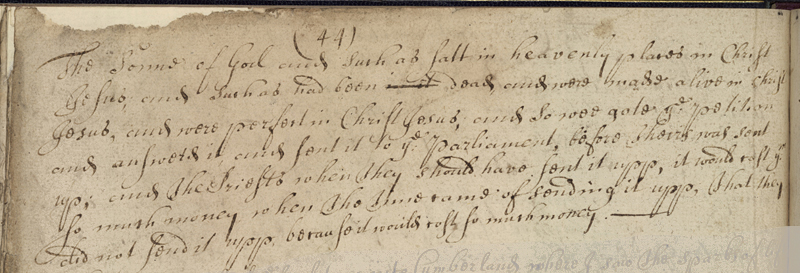 (44)
The Sonne of God and such as satt in heavenly places in Christ
Jesus, and such as had been dead, and were made alive in Christ
Jesus, and were perfect in Christ Jesus, and so wee gott ye petition
and answerd it and sent it to ye Parliament, before theirs was sent
up; and the Priests when they should have sent it upp, it would cost ym
so much money when the time came of sending it upp, that they
did not send it upp because it would cost so much money.
Cumberland where I saw the sparks of